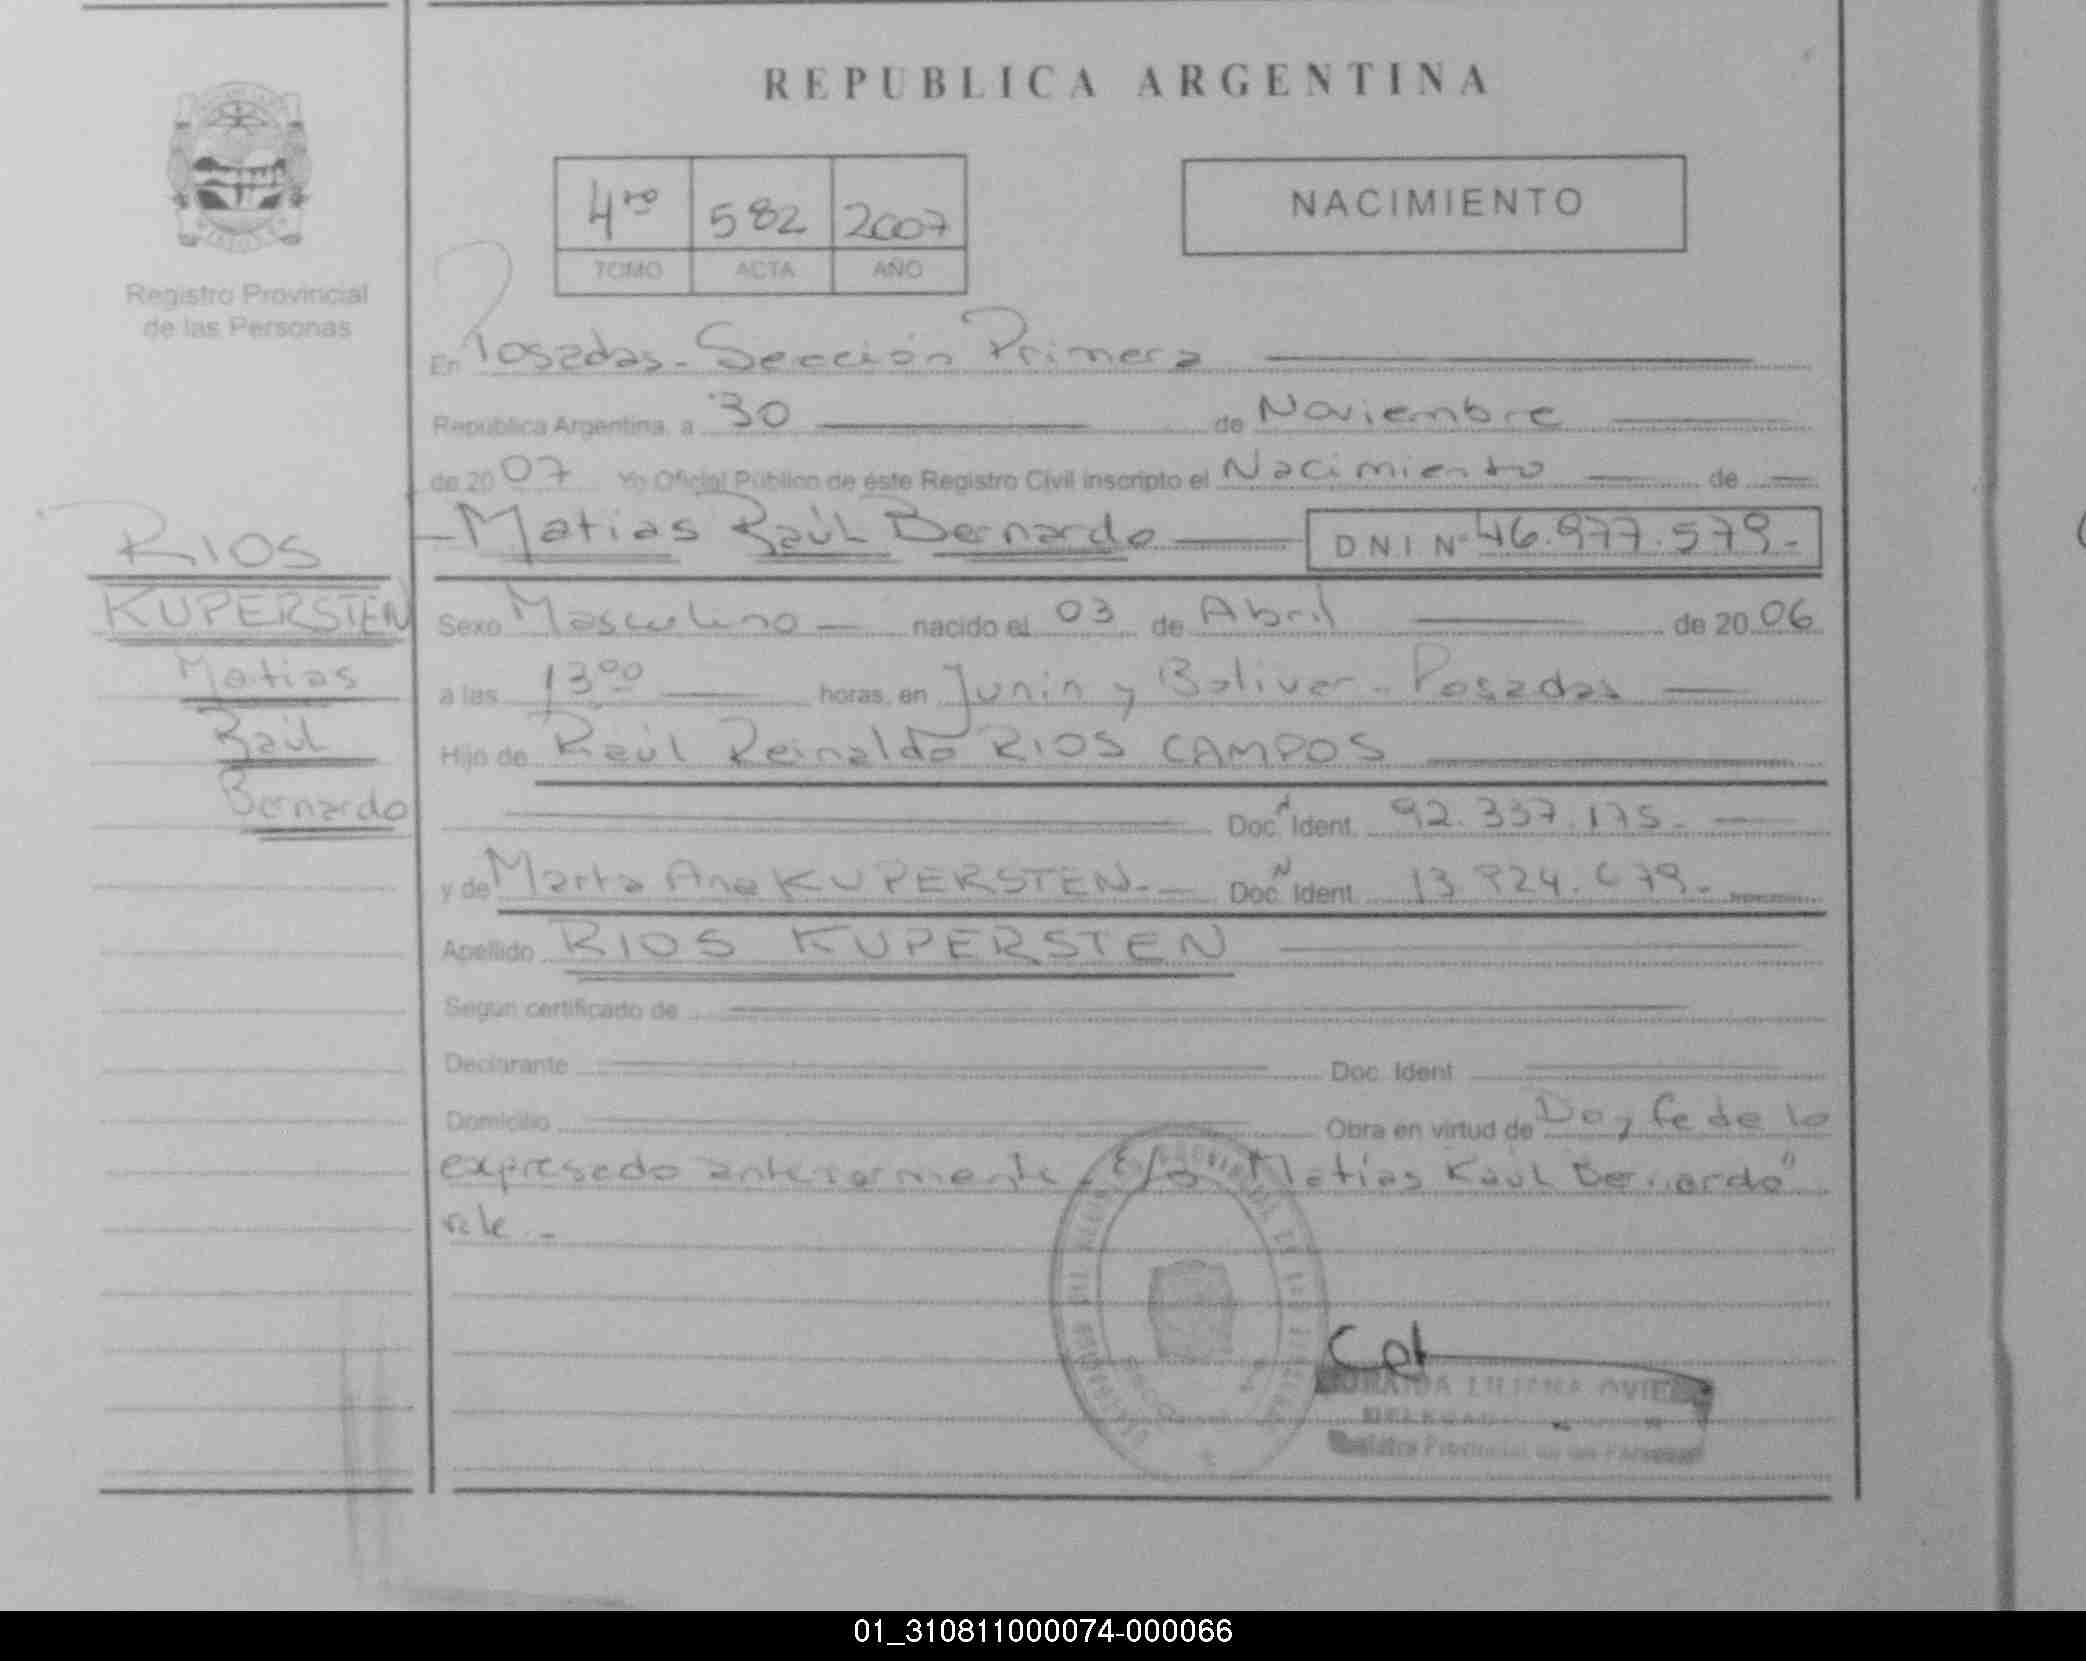 REPUBLICA ARGENTINA
4ro 582 2007
TOMO ACTA AÑO
NACIMIENTO
Registro Provincial
de las Personas
En Posadas - Sección Primera
República Argentina, a 30 de Noviembre
de 2007 Yo Oficial Público de éste Registro Civil inscripto el Nacimiento de
Matias Raúl Bernardo DNI Nº 46.977.579.-
RIOS
KUPERSTEN
Matias
Raúl
Bernardo
Sexo Masculino nacido el 03 de Abril de 2006
a las 13 00 horas, en Junin y Bolivar - Posadas
Hijo de Raúl Reinaldo RIOS CAMPOS
Doc. Ident. 92.337.175.-
y de Marta Ana KUPERSTEN.- Doc. Ident.
Apellido RIOS KUPERSTEN
Según certificado de
Declarante Doc. Ident.
Domicilio Obra en virtud de Doy fe de lo
expresado anteriormente. E/o "Matias Raúl Bernardo"
vale.-
LILIANA
Registro Provincial de las Personas
01_310811000074-000066